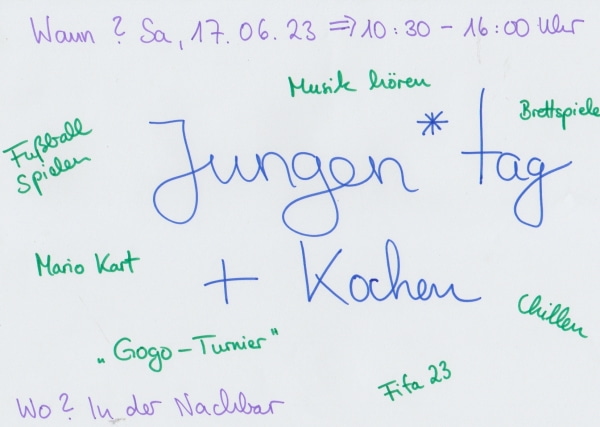 Wann? Sa, 17.06.23 => 10:30 - 16:00 Uhr
Musik hören
Brettspiele
Fußball
Spielen
Jungen* tag
Mario Kart
+ Kochen
Chillen
„Gogo-Turnier"
Fifa 23
Wo? In der Nachbar